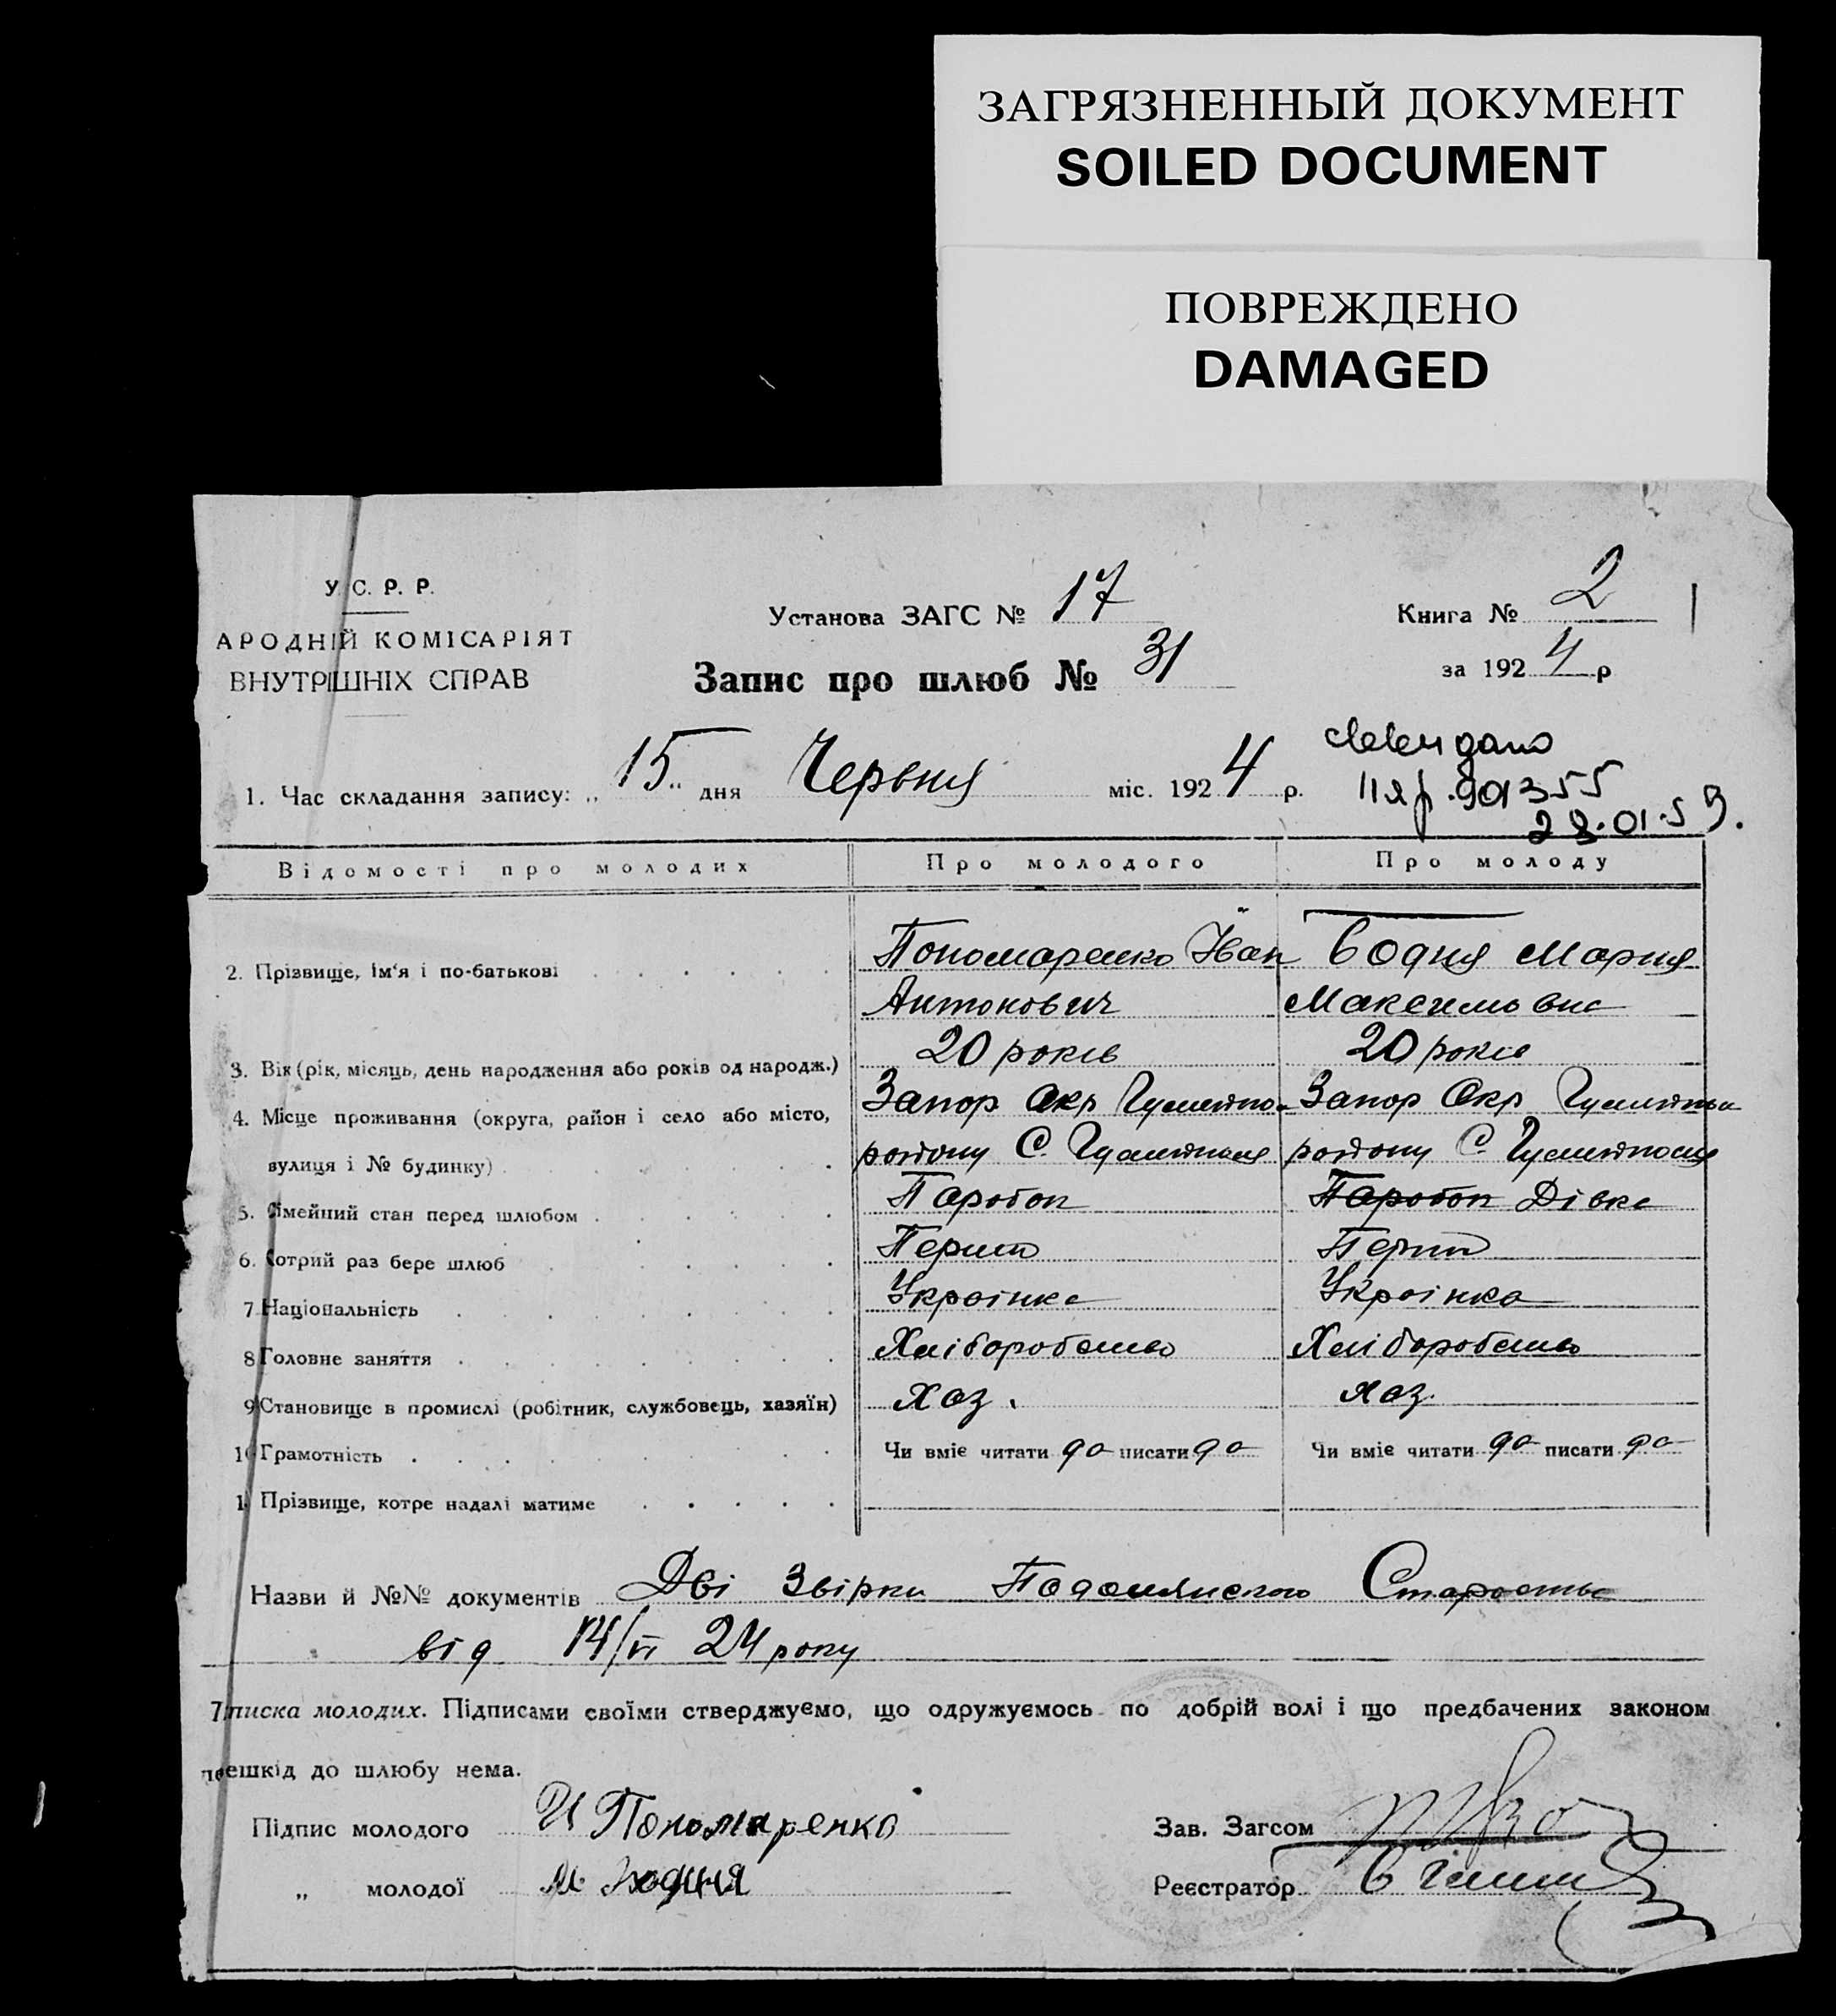 ЗАГРЯЗНЕННЫЙ ДОКУМЕНТ
SOILED DOCUMENT
ПОВРЕЖДЕНО
DAMAGED
У. С. Р. Р.
АРОДНІЙ КОМІСАРІЯТ
ВНУТРІШНІХ СПРАВ
Установа ЗАГС № 17
Книга № 2
Запис про шлюб № 31
за 1924 р
1. Час складання запису: „ 15 " дня Червня міс. 1924 р.
901355
29.01.59.
Відомості про молодих Про молодого Про молоду
2. Прізвище, ім'я і по-батькові Пономаренко Іван Водня Мария
Антонович Максимовна
3. Вік (рік, місяць, день народження або років од народж.) 20 років 20 років
4. Місце проживання (округа, район і село або місто, Запор Окр Запор Окр
вулиця і № будинку) району С. району С.
5. Сімейний стан перед шлюбом Паробок Паробок Дівка
6. Котрий раз бере шлюб Перший Перший
7. Національність Украінка Украінка
8 Головне заняття Хліборобство Хліборобство
9 Становище в промислі (робітник, службовець, хазяїн) Хаз. хаз.
10 Грамотність Чи вміє читати да писати да Чи вміє читати да писати да
1 Прізвище, котре надалі матиме
Назви й №№ документів Дві Звірки Старости
від 14/VI 24 року
писка молодих. Підписами своїми стверджуємо, що одружуємось по добрій волі і що предбачених законом
решкід до шлюбу нема.
Підпис молодого И Пономаренко
Зав. Загсом
„ молодої М Водня
Реєстратор